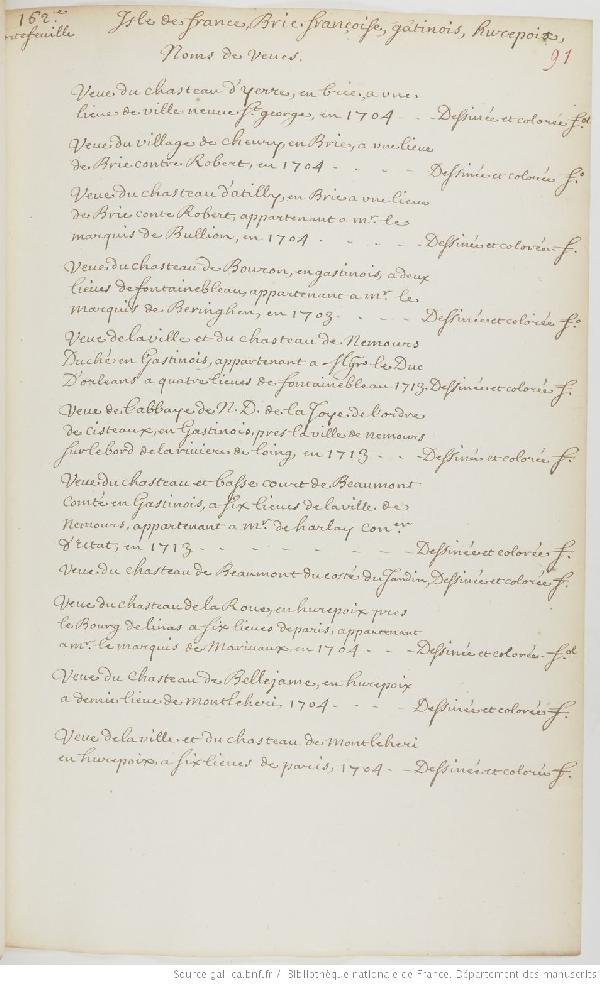 162.e
portefeuille
Isle de france, Brie françoise, gâtinois, hurepoix,
91
Noms de Veues.
Veue du chasteau d'yerre, en brie, a vne
lieue de ville neuue S.t george, en 1704 - - Dessinée et colorée f.
Veue du village de cheury, en Brie, a vne lieue
de Brie contre Robert, en 1704 - - - - Dessinée et colorée f.o
Veue du chasteau d'atilly, en Brie a vne lieue
de Brie conte Robert, appartenant a m.r le
marquis de Bullion, en 1704 - - - - Dessinée et colorée f.
Veue du chasteau de Bouron, en gastinois, a deux
lieues de fontainebleau, appartenant a m.r le
marquis de Beringhen, en 1703 - - - Dessinée et colorée f.o
Veue de la ville et du chasteau de Nemours
Duché en Gastinois, appartenant a Mgr. le Duc
D'orleans a quatre lieues de fontainebleau 1713. Dessinée et colorée f.
Veue de l'abbaye de N. D. de la Joye, de l'ordre
de cisteaux, en Gastinois, pres la ville de nemours
sur le bord de la riuiere de loing, en 1713 - - Dessinée et colorée f.
Veue du chasteau et basse court de Beaumont
Comté en Gastinois, a six lieues de la ville de
Nemours, appartenant a m.r de harlay con.er
d'Estat, en 1713 - - - - - - - Dessinée et colorée f.
Veue du chasteau de Beaumont du costé du Jardin, Dessinée et colorée f.
Veue du chasteau de la Roue, en hurepoix pres
le Bourg de linas a six lieues de paris, appartenant
a m.r le marquis de Mariuaux en 1704 - - Dessinée et colorée f.
Veue du Chasteau de Bellejame, en hurepoix
a demie lieue de montleheri, 1704 - - - Dessinée et colorée f.
Veue de la ville et du chasteau de montleheri
en hurepoix, a six lieues de paris, 1704 - - Dessinée et colorée f.
Source gallica.bnf.fr / Bibliothèque nationale de France. Département des manuscrits